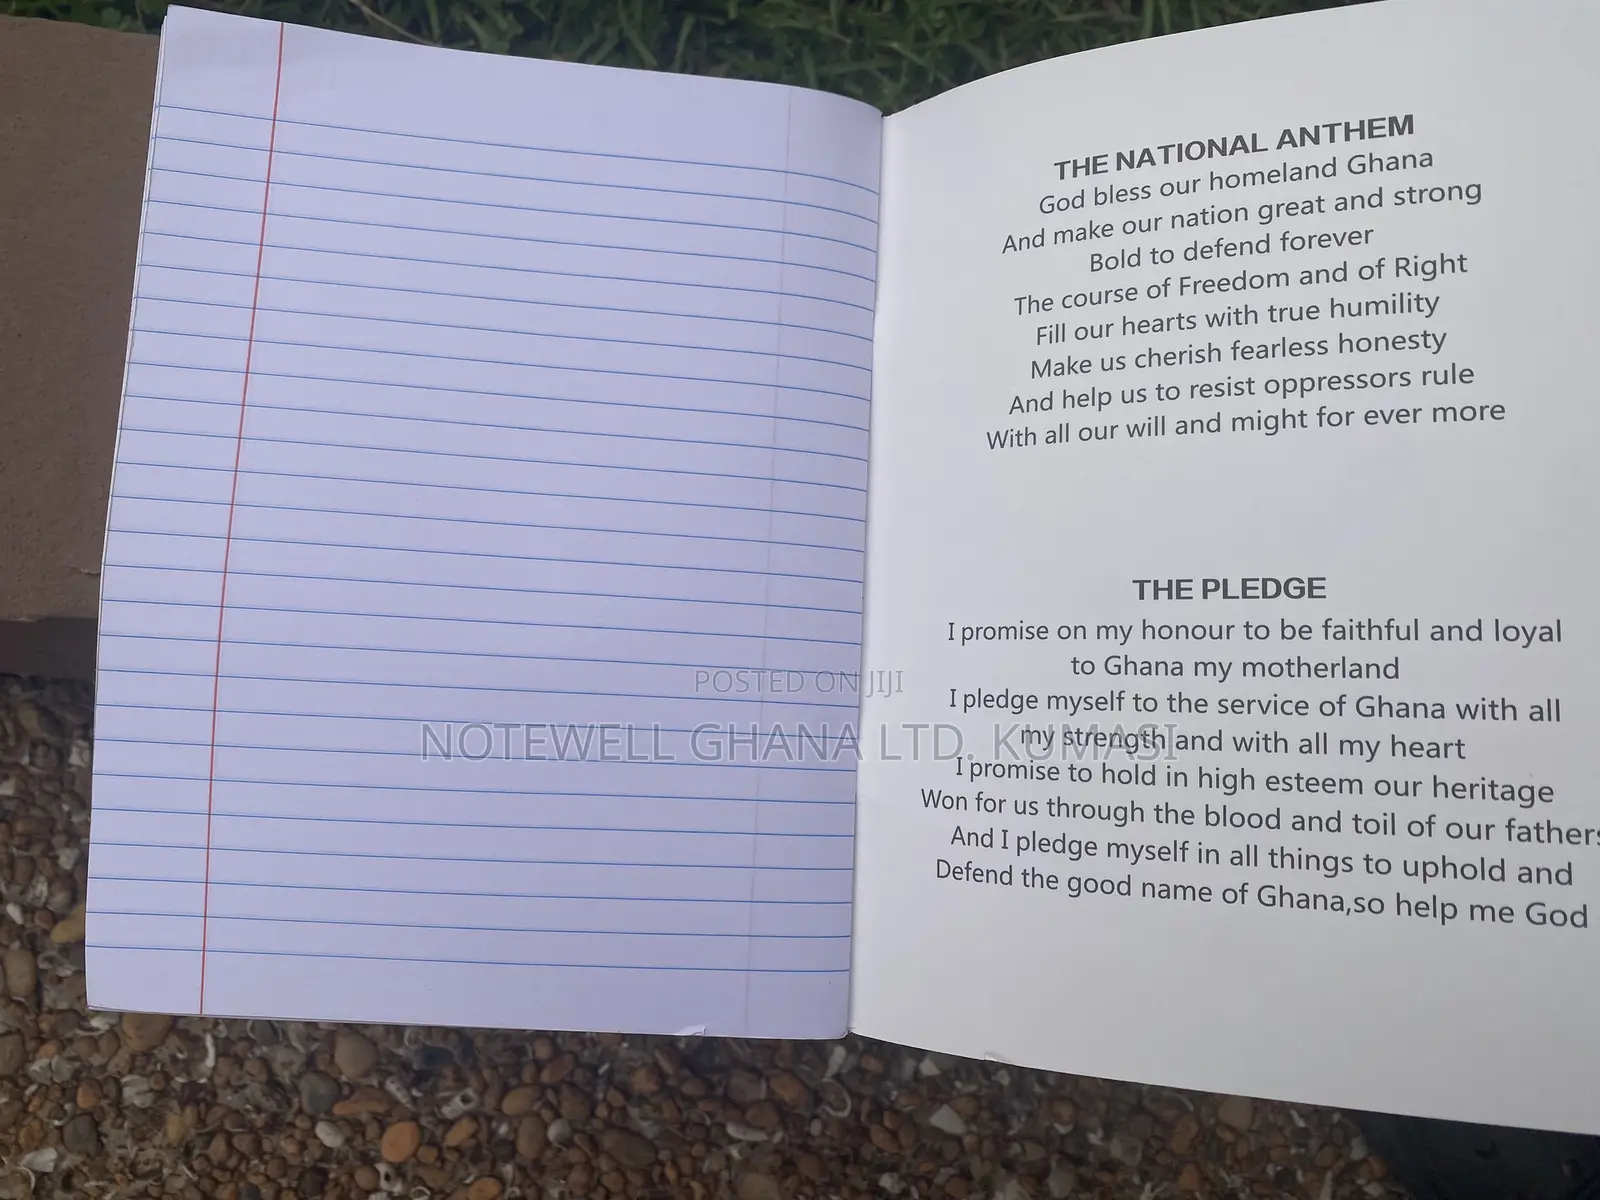 THE NATIONAL ANTHEM
God bless our homeland Ghana
And make our nation great and strong
Bold to defend forever
The course of Freedom and of Right
Fill our hearts with true humility
Make us cherish fearless honesty
And help us to resist oppressors rule
With all our will and might for ever more
THE PLEDGE
I promise on my honour to be faithful and loyal
to Ghana my motherland
I pledge myself to the service of Ghana with all
my strength and with all my heart
I promise to hold in high esteem our heritage
Won for us through the blood and toil of our fathers
And I pledge myself in all things to uphold and
Defend the good name of Ghana,so help me God
POSTED ON JIJI
NOTEWELL GHANA LTD. KUMASI